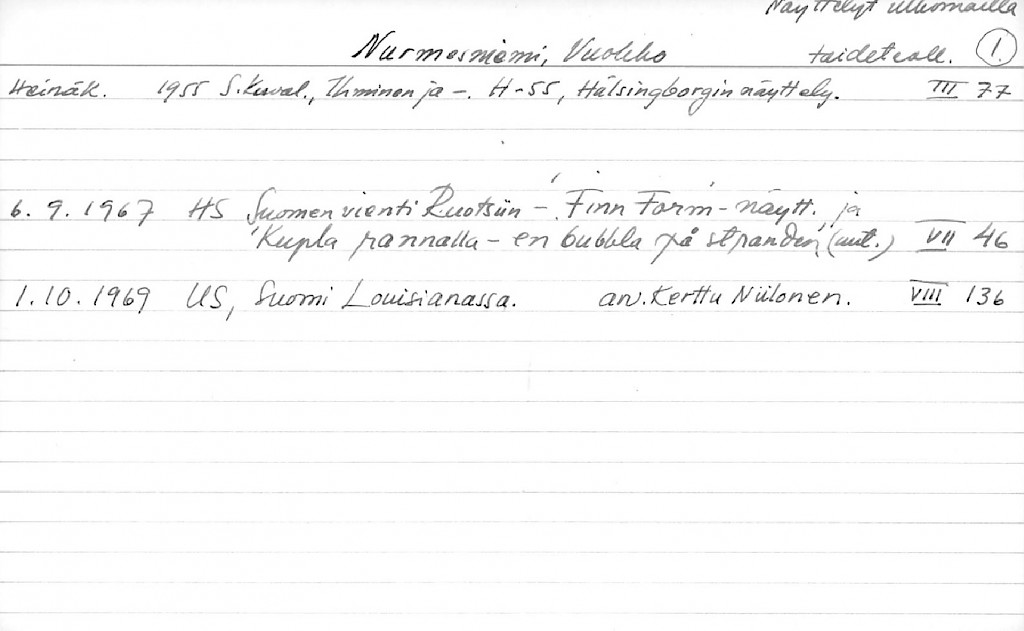 Näyttelyt ulkomailla
Nurmesniemi, Vuokko taideteoll. 1.
Heinäk. 1955 S.Kuval., Ihminen ja -. H-55, Hälsingborgin näyttely. III 77
6. 9. 1967 HS Suomen vienti Ruotsiin - 'Finn Form'- näytt. ja
'Kupla rannalla - en bubbla på stranden' (uut.) VII 46
1. 10. 1969 US, Suomi Louisianassa. arv. Kerttu Niilonen. VIII 136